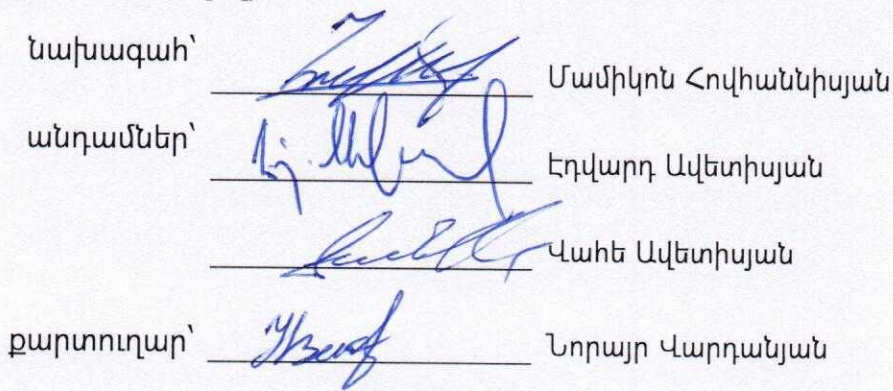 նախագահ՝ Մամիկոն Հովհաննիսյան
անդամներ՝ Էդվարդ Ավետիսյան
Վահե Ավետիսյան
քարտուղար՝ Նորայր Վարդանյան